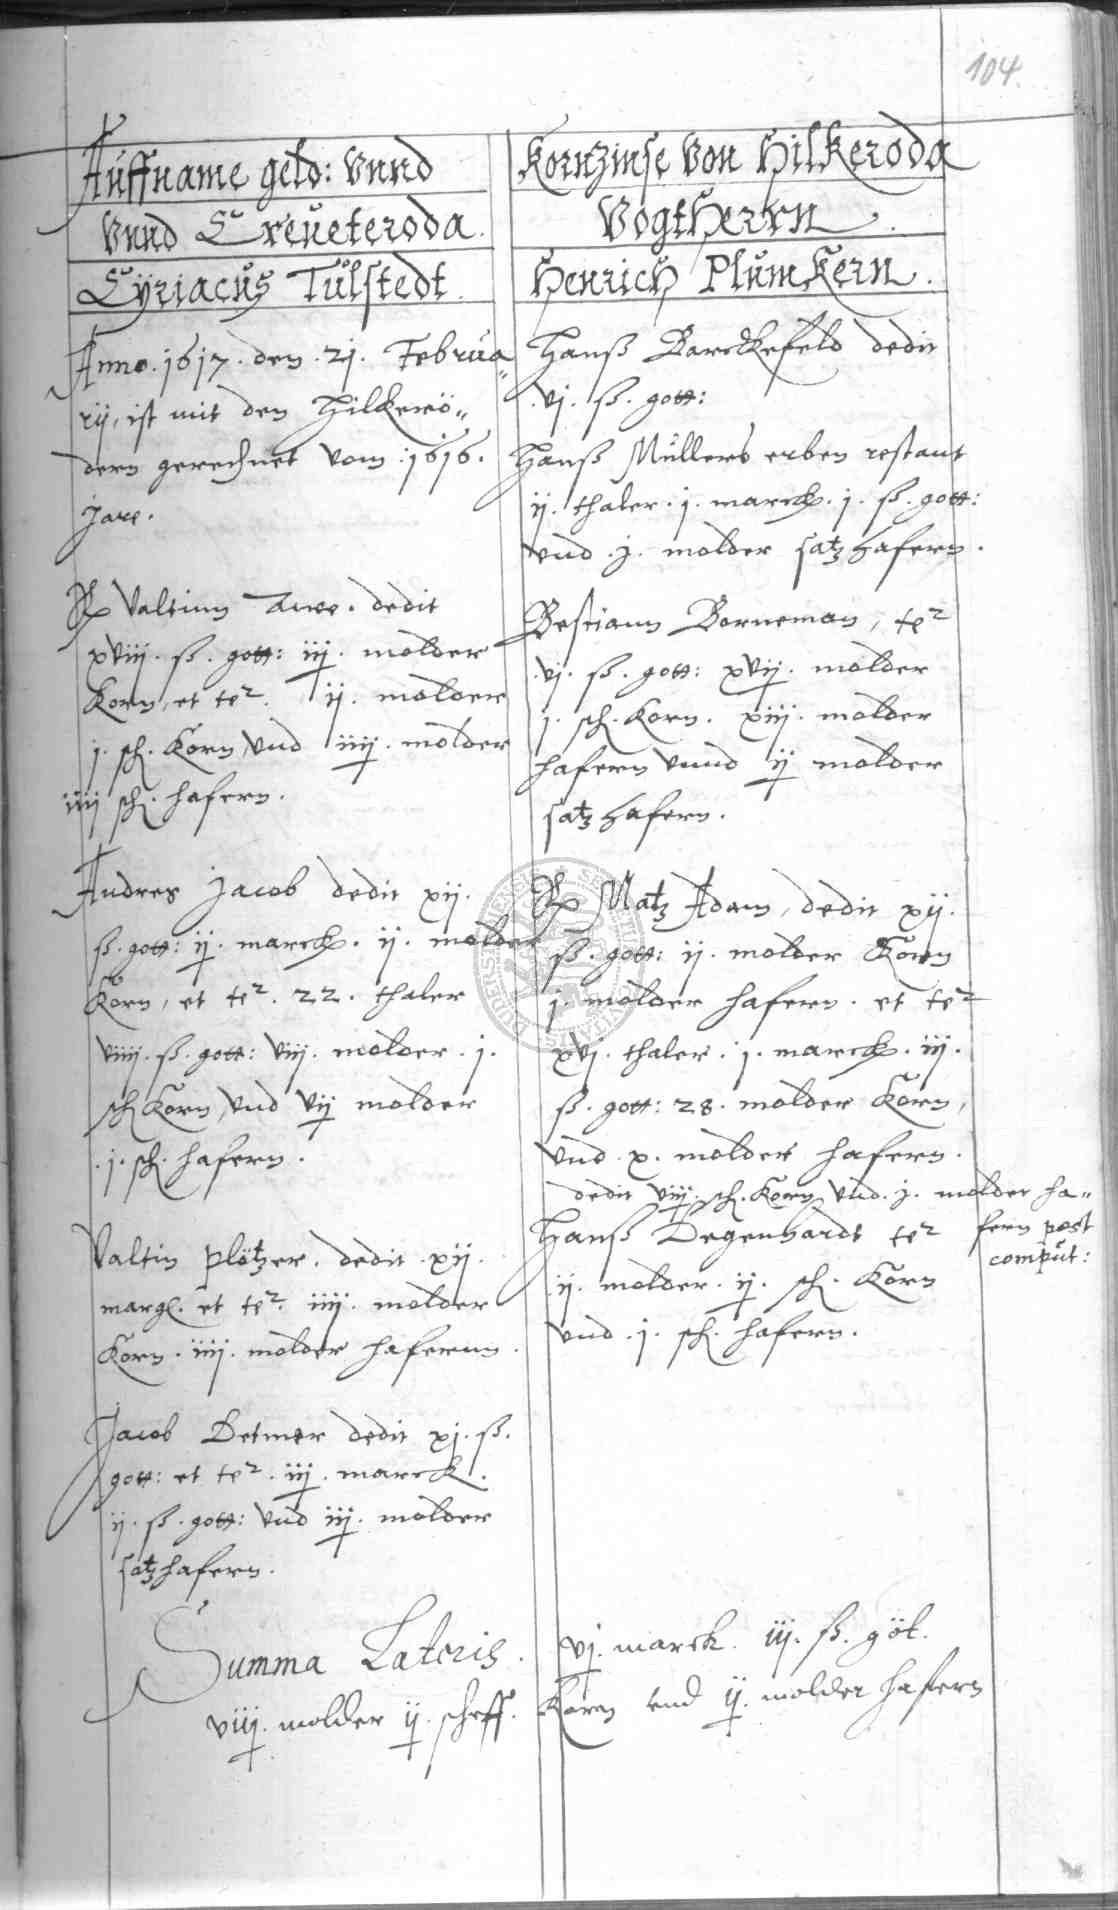 104.
Auffname geld: Vnnd Kornzinse Von Hilkeroda
Vnnd Creueteroda. Vogtherrn.
Cÿriacus Tulstedt. Henrich Plumkern.
Anno. 1617. den. 21. Februa„
rij, ist mit den Hilkerö„
dern gerechnet vom. 1616.
Jare.
Valtinn Awe. dedit
xviij. ß. gott: iij. molder
Korn, et te². ij. molder
j. sch. Korn, Vnd iiij. molder
iiij sch. hafern.
Andres Jacob dedit xij.
ß. gott: ij. marck. ij. molder
Korn, et te². 22. thaler
viiij. ß. gott: viij. molder. j.
sch Korn, Vnd vij molder
.j. sch. hafern.
Valtin Plötzer. dedit. xij.
marg. et te². iiij. molder
Korn. iiij. molder hafernn.
Jacob Detmer dedit xj. ß.
gott: et te². iij. marck.
ij. ß. gott: Vnd iij. molder
satzhafern.
Hanß Barckefeld dedit
.vj. ß. gott:
Hanß Müllers erben restant
ij. thaler. j. marck. j. ß. gott:
Vnd .j. molder satzhafern.
Bestiann Borneman, te²
.vj. ß. gott: xvij. molder
j. sch. Korn. xiij. molder
hafern Vnnd ij molder
satzhafern.
Matz Adam, dedit xij.
ß. gott: ij. molder Korn
j. molder hafern. et te²
xvj. thaler. j. marck. iij.
ß. gott: 28. molder Korn,
Vnd .x. molder hafern.
dedit viij. sch. Korn Vnd. j. molder ha„
fern post
comput:
Hanß Degenhardt te²
ij. molder. ij. sch. Korn
Vnd .j. sch. hafern.
Summa Lateris. vj. marck. iij. ß. göt.
viij. molder ij. scheff. Korn vnd ij. molder hafern